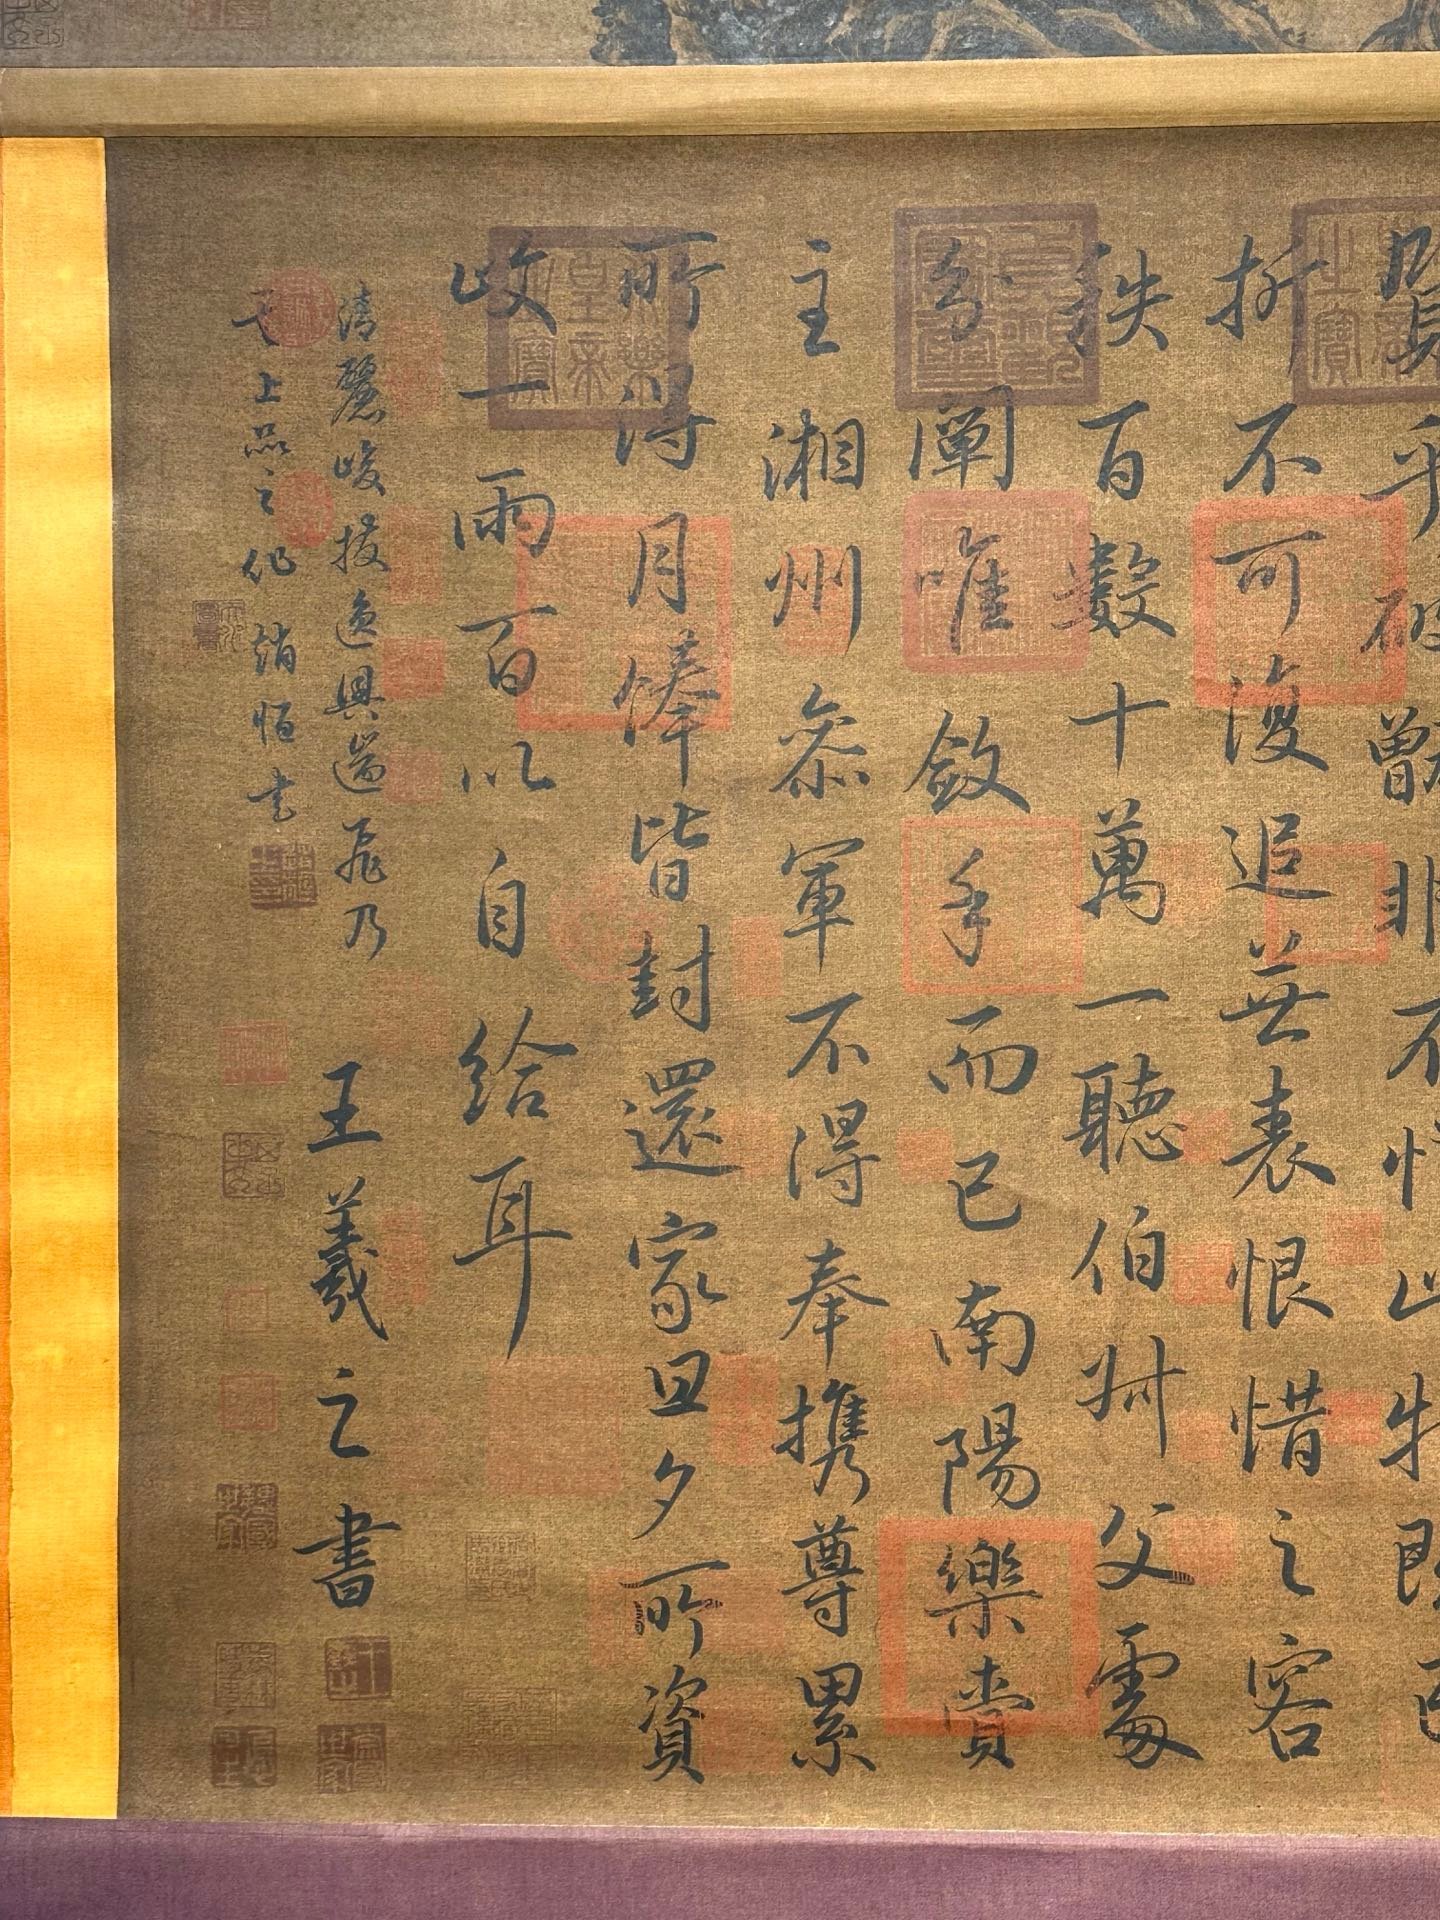 賢乎破甑非不惜此物既已
折不可復追無表恨惜之容
秩百數十萬一聽伯叔父處
分闡唯斂手而已南陽樂賞
主湘州參軍不得奉攜尊累
所得月俸皆封還家旦夕所資
收一兩百以自給耳
王羲之書
清麗峻拔逸興遄飛乃
无上品之作趙恒書